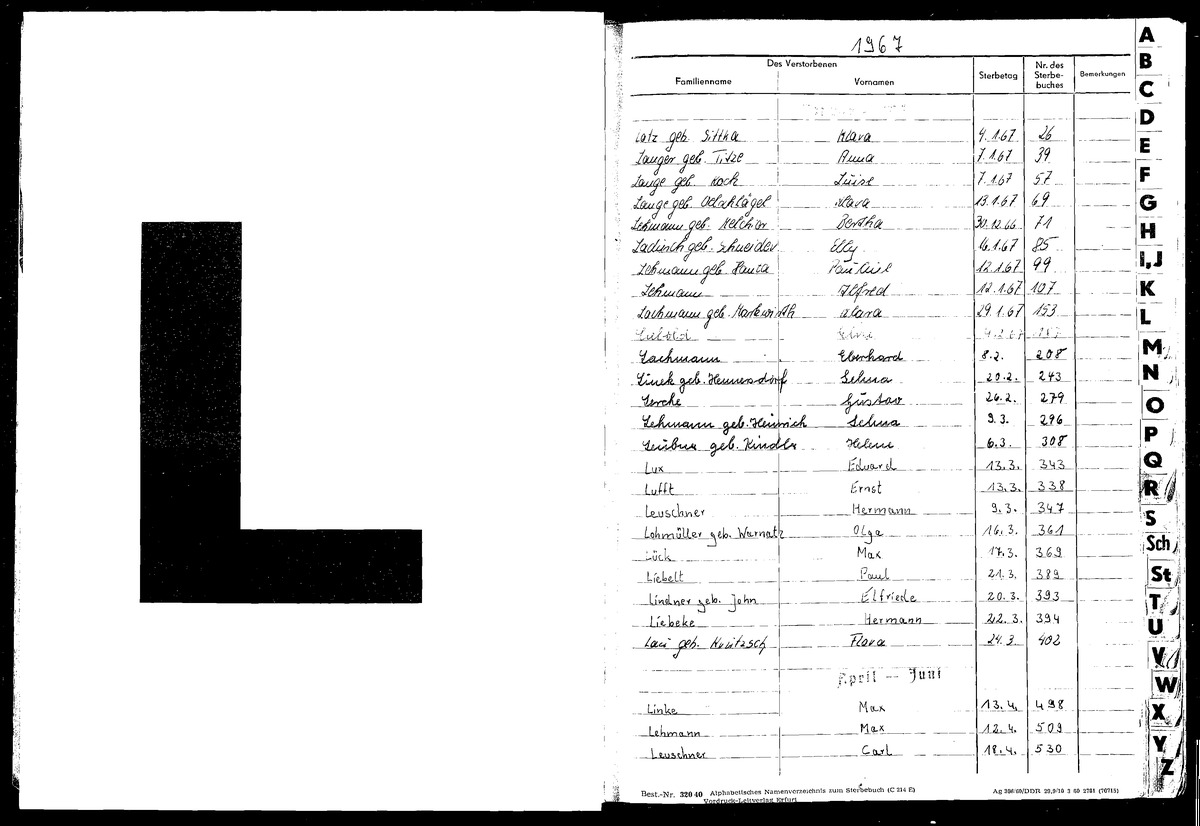 L
1967
Des Verstorbenen
Familienname Vornamen Sterbetag Nr. des Sterbe-buches Bemerkungen
Latz geb. Sittka Klara 4.1.67 26
Langer geb. Titze Anna 7.1.67 39
Lange geb. Koch Luise 7.1.67 57
Lange geb. Klara 13.1.67 69
Lehmann geb. Melchior Bertha 30.12.66 71
Ladusch geb. Schneider Elly 16.1.67 85
Lehmann geb. Pauline 12.1.67 99
Lehmann Alfred 12.1.67 107
Lachmann geb. Markwirth Klara 29.1.67 153
Lachmann Eberhard 8.2. 208
Linek geb. Hennersdorf Selma 20.2. 243
Lerche Gustav 26.2. 279
Lehmann geb. Heinrich Selma 9.3. 296
Leubner geb. Kindler Helene 6.3. 308
Lux Eduard 13.3. 343
Lufft Ernst 13.3. 338
Leuschner Hermann 9.3. 347
Lohmüller geb. Warnatz Olga 16.3. 361
Lück Max 17.3. 369
Liebelt Paul 21.3. 389
Lindner geb. John Elfriede 20.3. 393
Liebeke Hermann 22.3. 394
geb. Flora 24.3. 402
April - Juni
Linke Max 13.4. 498
Lehmann Max 12.4. 509
Leuschner Carl 18.4. 530
Best.-Nr. 320 40 Alphabetisches Namenverzeichnis zum Sterbebuch (C 214 E)
Vordruck-Leitverlag Erfurt
A
B
C
D
E
F
G
H
I,J
K
L
M
N
O
P
Q
R
S
Sch
St
T
U
V
W
X
Y
Z